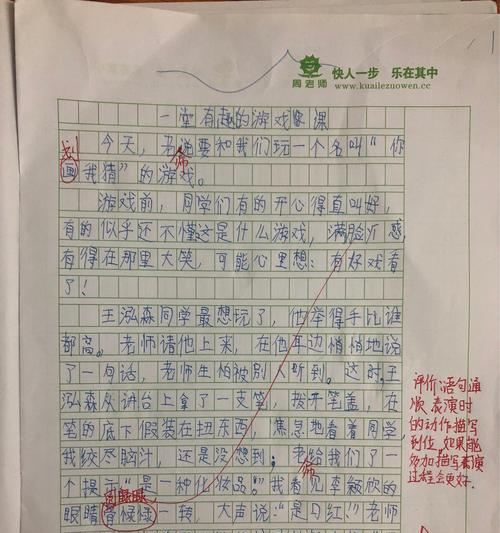 周老师
快人一步 乐在其中
www.kuailezuowen.cc
一堂有趣的游戏课
今天，老说要和我们玩一个名叫“你
师
划
画我猜”的游戏。
游戏前，同学们有的开心得直叫好，
有的似乎还不懂这是什么游戏，满脸疑惑，
有得在那里大笑，可能心里想：有好戏看
了！
王泓森同学最想玩了，他举得手比谁
都高。老师请他上来，在他耳边悄悄地说
了一句话，老师生怕被别人听到。这时，王
泓森从讲台上拿了一支笔，拨开笔盖，在
笔的底下假装在扭东西，焦急地看着同学，
我绞尽脑汁，还是没想到；老给我们了一
师
个提示“是一种化妆品。”我看见李颖欣的
眼睛 一转，大声说：“是口红！”老师
评价：语句通
顺，表演时
的动作描写
到位，如果能
多加描写表演
过程会更好。